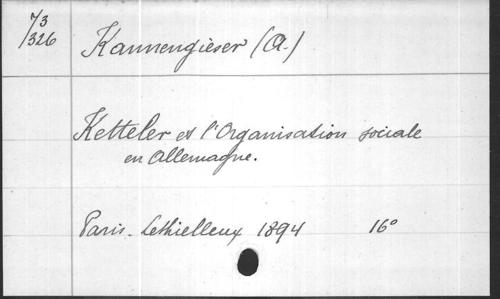 73
1326
Kannengieser (A.)
Ketteler et l'Organisation sociale
en Allemagne.
Paris. Lethielleux 1894 16°